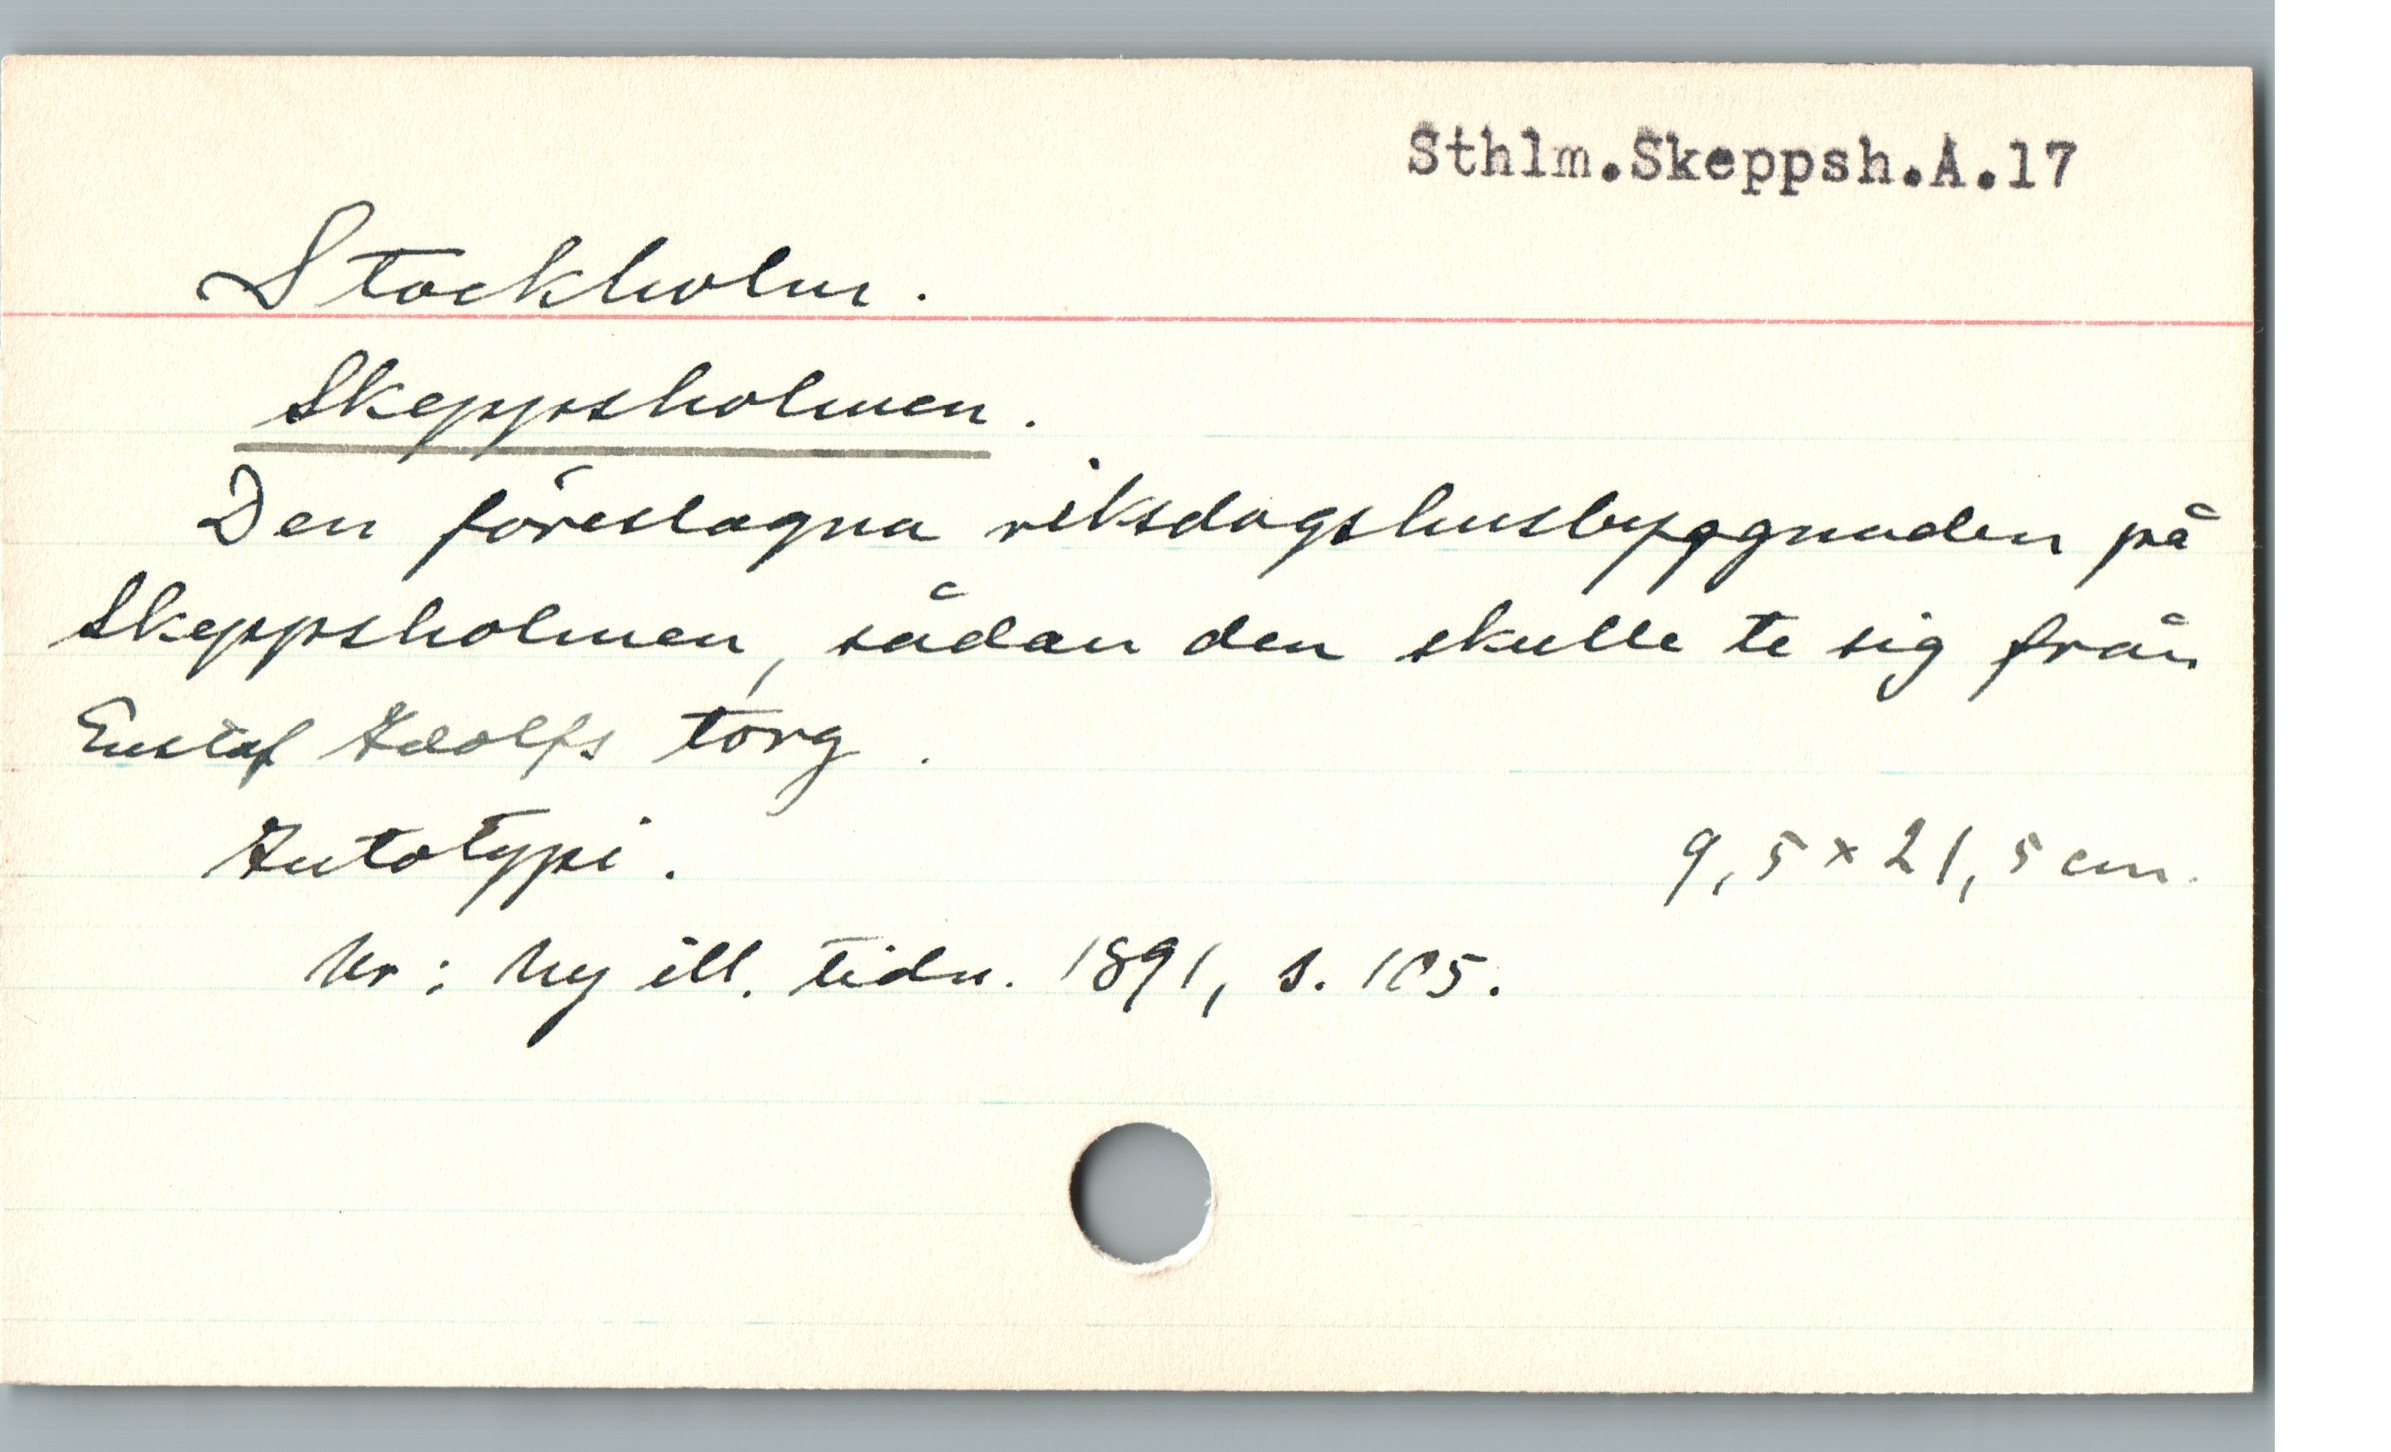 Sthlm.Skeppsh.A.17
Stockholm.
Skeppsholmen.
Den föreslagna riksdagshusbyggnaden på
Skeppsholmen, sådan den skulle te sig från
Gustaf Adolfs torg.
Autotypi. 9,5 × 21,5 cm.
Ur: Ny ill. tidn. 1891, s. 105.